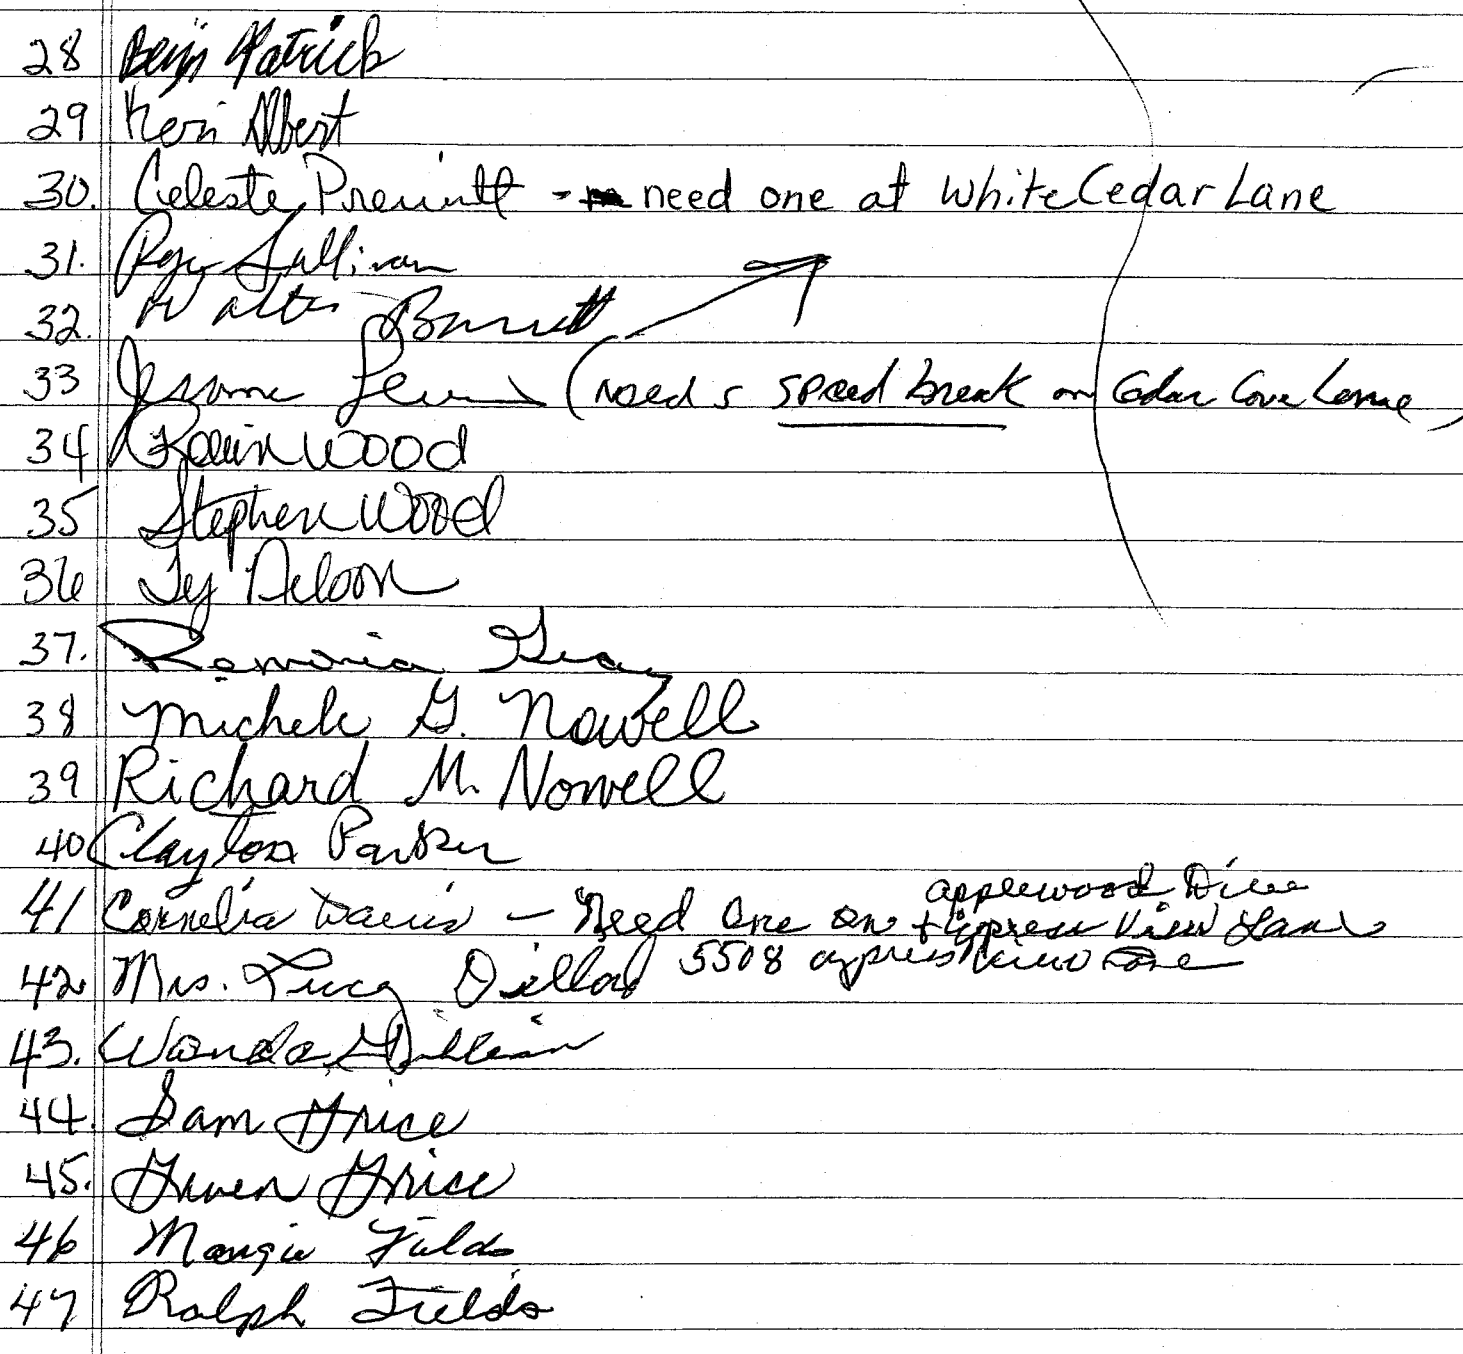 28 Benji Patrick
29 Keri Albert
30. Celeste Prewitt - need one at White Cedar Lane
31. Sullivan
32. Walter Barnett
33 Jerome Lewis (needs speed break on Cedar Cove Lane)
34 Robin Wood
35 Stephen Wood
36 Ty Deloon
37. Gray
38 Michele G. Nowell
39 Richard M. Nowell
40 Clayton Parker
41 Cornelia Davis - Need One on applewood Drive
+ Cypress View Lane
42. Mrs. Lucy Dillard 5508 cypress View Lane
43. Wanda Gillian
44. Sam Grice
45. Gwen Grice
46 Margie Fields
47 Ralph Fields